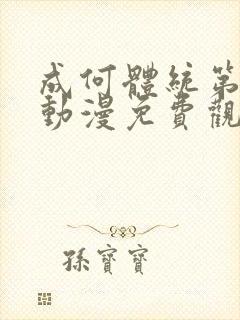 成何體統第
動漫免費觀
孫寶寶